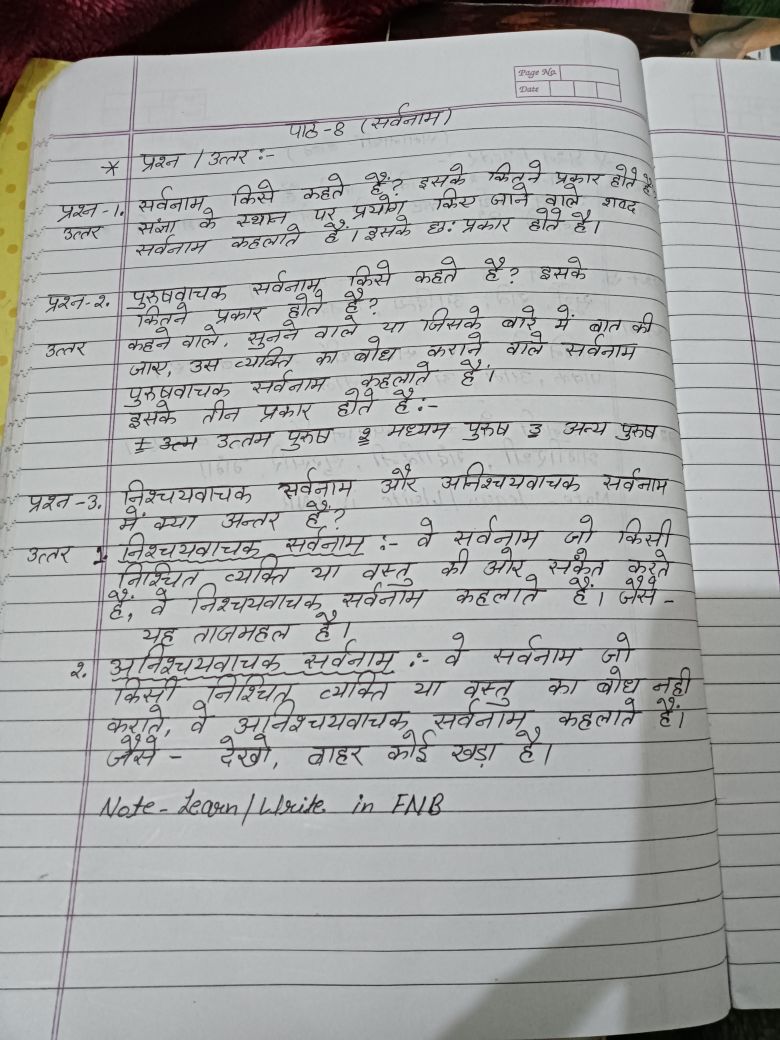 Page No.
Date
पाठ-8 (सर्वनाम)
* प्रश्न / उत्तर :-
प्रश्न-1. सर्वनाम किसे कहते हैं? इसके कितने प्रकार होते हैं
उत्तर संज्ञा के स्थान पर प्रयोग किए जाने वाले शब्द
सर्वनाम कहलाते हैं। इसके छः प्रकार होते हैं।
प्रश्न-2. पुरुषवाचक सर्वनाम किसे कहते हैं? इसके
कितने प्रकार होते हैं?
उत्तर कहने वाले, सुनने वाले या जिसके बारे में बात की
जाए, उस व्यक्ति का बोध कराने वाले सर्वनाम
पुरुषवाचक सर्वनाम कहलाते हैं।
इसके तीन प्रकार होते हैं:-
1 उत्म उत्तम पुरुष 2 मध्यम पुरुष 3 अन्य पुरुष
प्रश्न-3. निश्चयवाचक सर्वनाम और अनिश्चयवाचक सर्वनाम
में क्या अन्तर है?
उत्तर 1. निश्चयवाचक सर्वनाम :- वे सर्वनाम जो किसी
निश्चित व्यक्ति या वस्तु की ओर संकेत करते
हैं, वे निश्चयवाचक सर्वनाम कहलाते हैं। जैसे -
यह ताजमहल है।
2. अनिश्चयवाचक सर्वनाम :- वे सर्वनाम जो
किसी निश्चित व्यक्ति या वस्तु का बोध नही
कराते, वे अनिश्चयवाचक सर्वनाम कहलाते हैं।
जैसे - देखो, बाहर कोई खड़ा है।
Note - Learn/Write in FNB